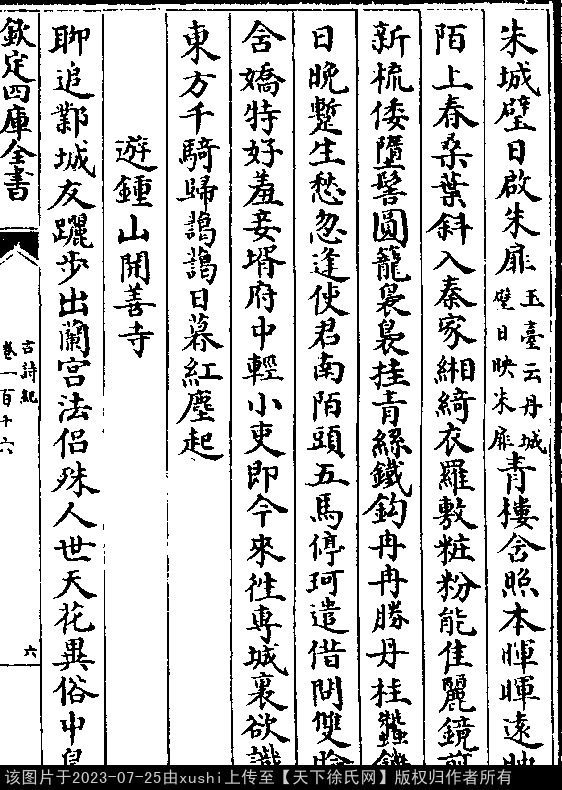 朱城璧日啟朱扉
玉臺云丹城
璧日映朱扉
青樓含照本暉暉遠映
陌上春桑葉斜入秦家緗綺衣羅敷粧粉能佳麗鏡前
新梳倭墮髻圓籠裊裊挂青絲鐵鈎冉冉勝丹桂蠶饑
日晚蹔生愁忽逢使君南陌頭五馬停珂遣借問雙臉
含嬌特好羞妾壻府中輕小吏即今來往專城裏欲識
東方千騎歸靄靄日暮紅塵起
遊鍾山開善寺
聊追鄴城友躧步出蘭宮法侶殊人世天花異俗中
欽定四庫全書
古詩紀
卷一百十六
六
该图片于2023-07-25由xushi上传至【天下徐氏网】版权归作者所有